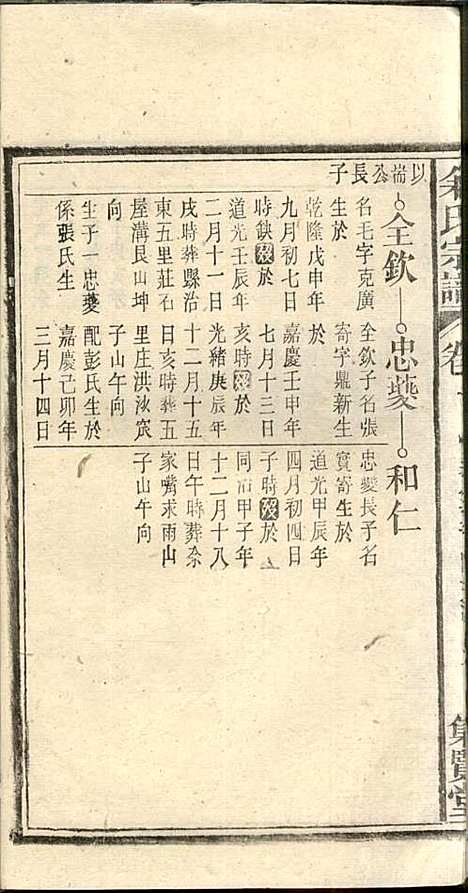 氏宗譜
卷
集賢堂
以耑公長子
全欽
忠夔
和仁
名毛字克廣
生於
乾隆戊申年
九月初七日
時缺歿於
道光壬辰年
二月十一日
戌時葬縣治
東五里莊石
屋溝艮山坤
向
生子一忠夔
係張氏生
全欽子名張
寄字鼎新生
於
嘉慶壬申年
七月十三日
亥時歿於
光緒庚辰年
十二月十五
日亥時葬五
里庄洪汝
子山午向
配彭氏生於
嘉慶己卯年
三月十四日
忠夔長子名
寶寄生於
道光甲辰年
四月初四日
子時歿於
同治甲子年
十二月十八
日午時葬余
家嘴求雨山
子山午向